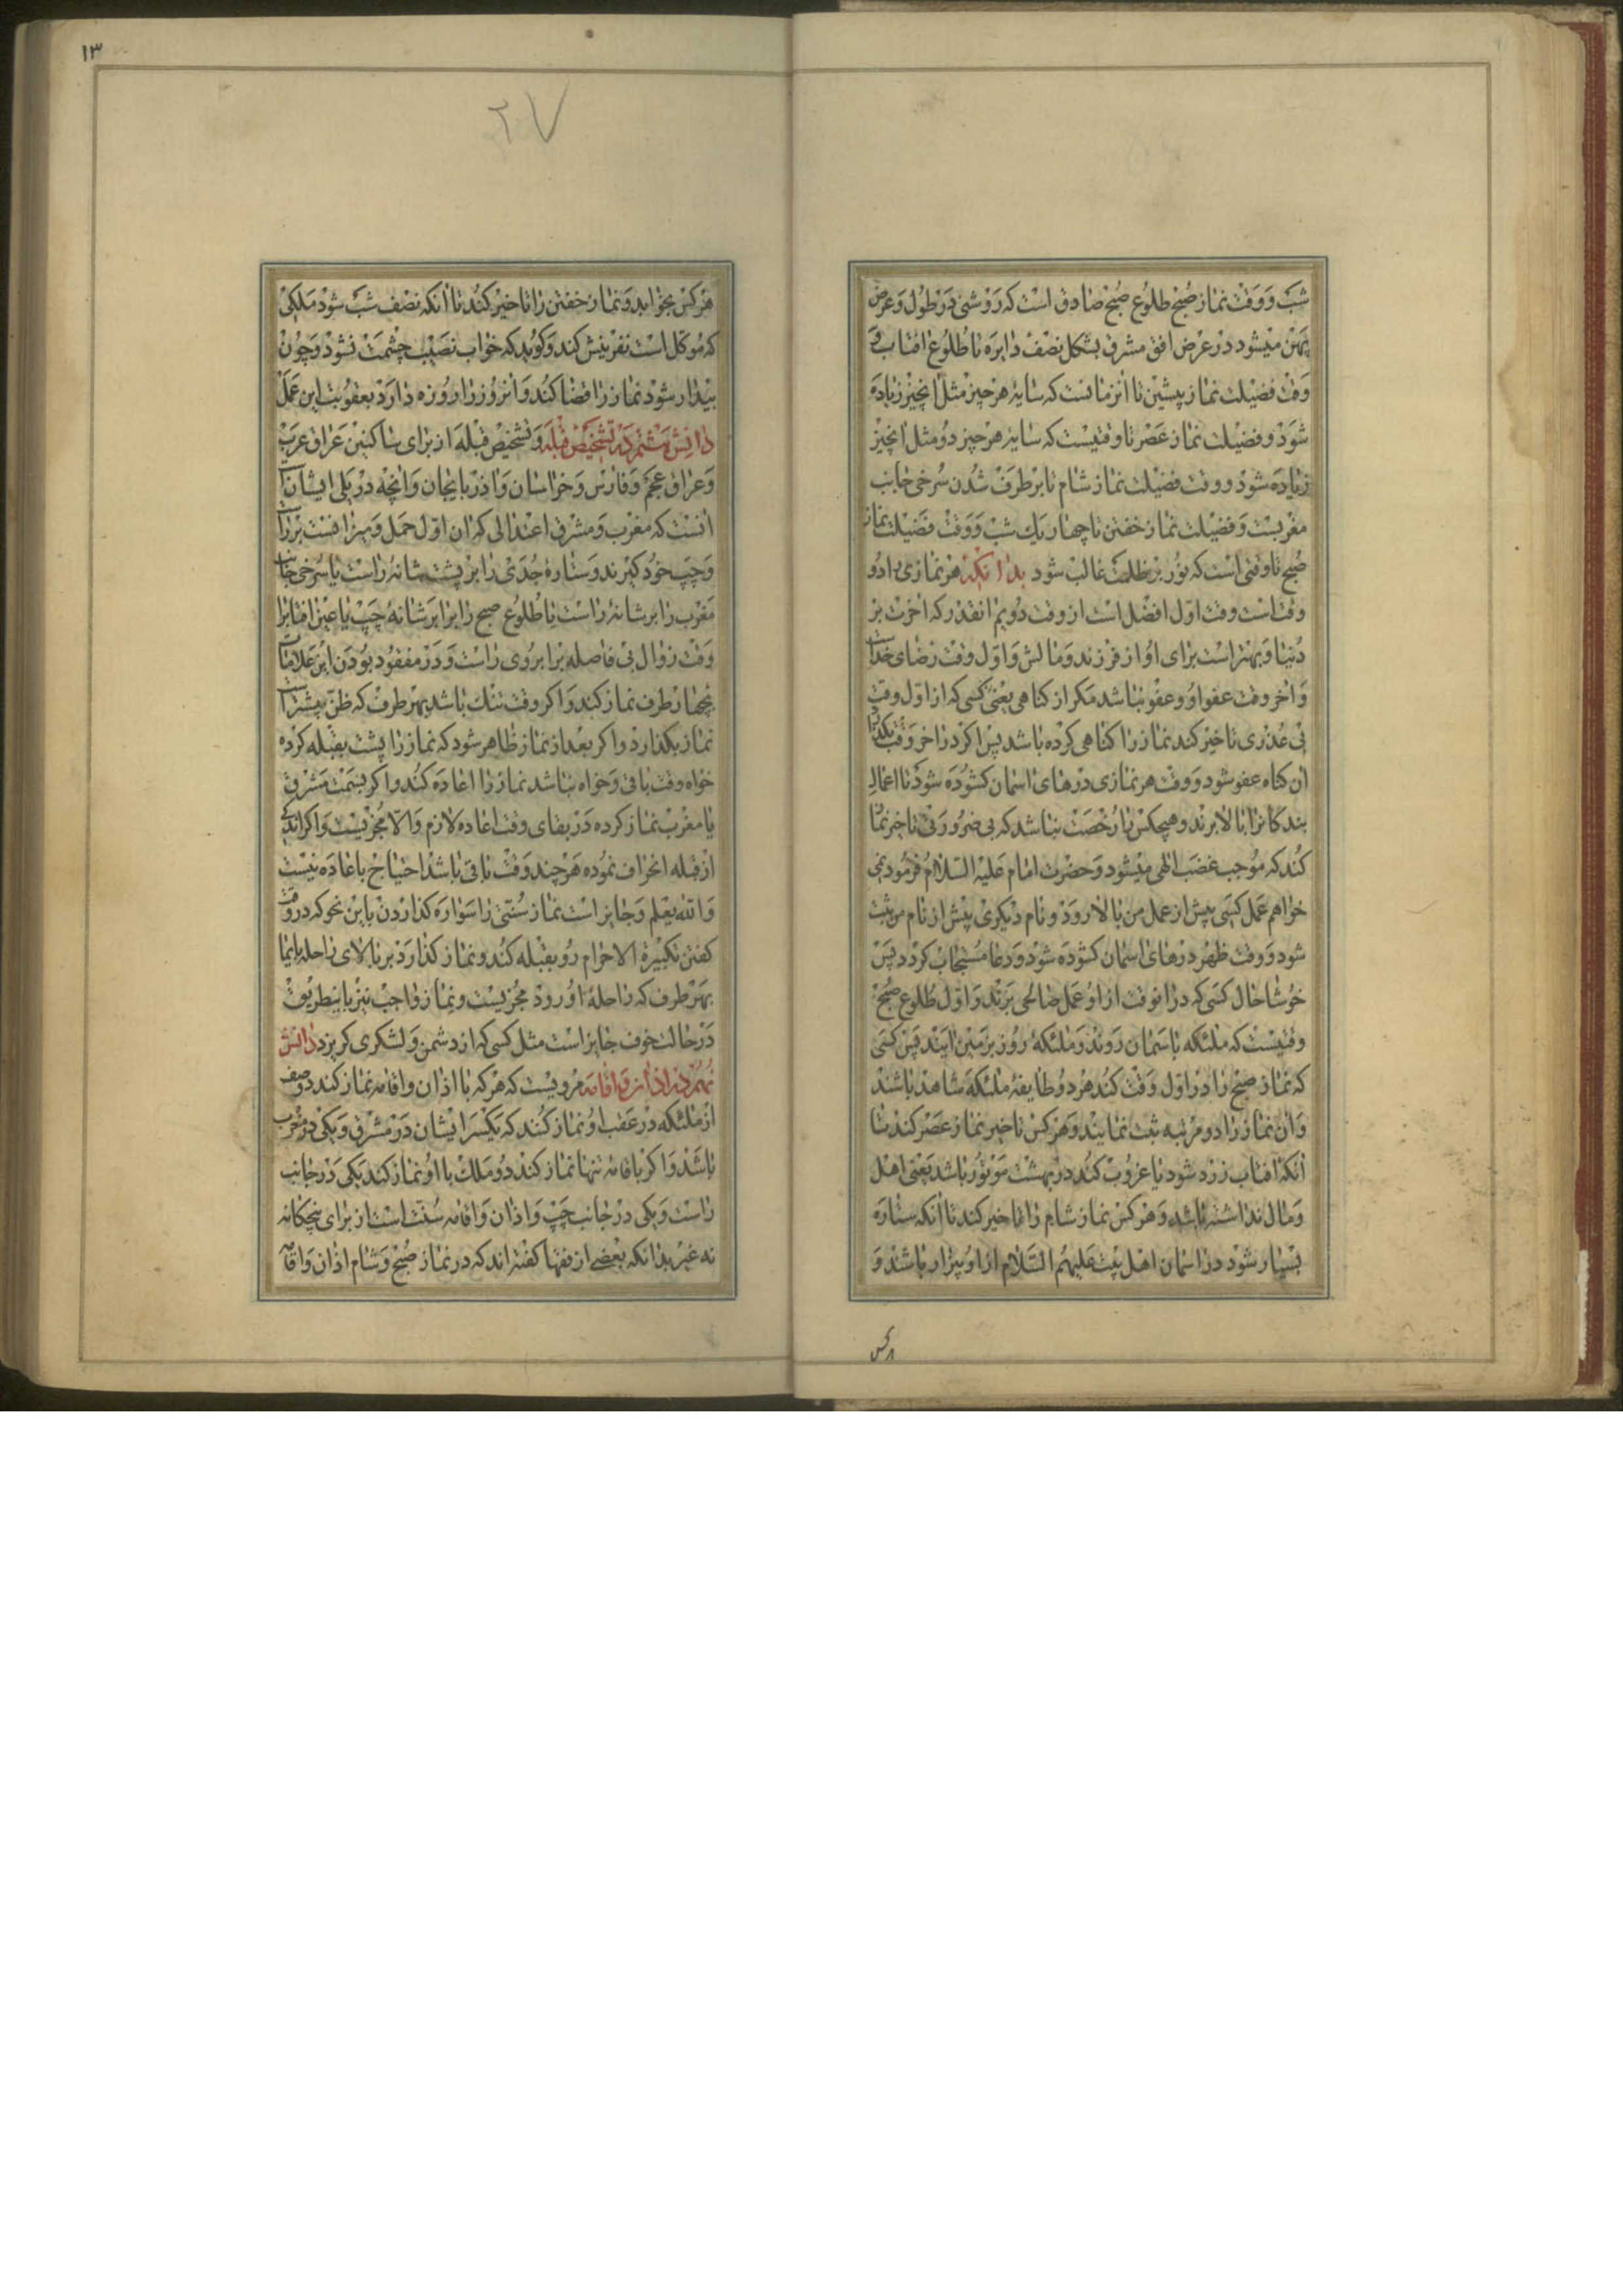 شب و وقت نماز صبح طلوع صبح صادق است که روشنی در طول و عرض
پهن میشود در عرض افق مشرق بشکل نصف دایره تا طلوع افتاب و
وقت فضیلت نماز پیشین تا انزمانست که سایۀ هر چیز مثل انچیز زیاده
شود و فضیلت نماز عصر تا وقتیست که سایۀ هر چیز دو مثل انچیز
زیاده شود و وقت فضیلت نماز شام تا برطرف شدن سرخی جانب
مغربست و فضیلت نماز خفتن تا چهار یك شب و وقت فضیلت نماز
صبح تا وقتی است که نور بر ظلمت غالب شود بدانکه هر نمازی را دو
وقت است وقت اول افضل است از وقت دویم انقدر که اخرت بر
دنیا و بهتر است برای او از فرزند و مالش و اول وقت رضای خداست
و اخر وقت عفو او و عفو نباشد مکر از کناهی یعنی کسی که از اول وقت
بی عذری تاخیر کند نماز را کناهی کرده باشد پس اکر در اخر وقت بکذارد
ان کناه عفو شود و وقت هر نمازی درهای اسمان کشوده شود تا اعمال
بندکانرا بالا برند و هیچکس را رخصت نباشد که بی ضرورتی تاخیر نما
کند که موجب غضب الهی میشود و حضرت امام علیه السلام فرمود نمی
خواهم عمل کسی پیش از عمل من بالا رود و نام دیکری پیش از نام من ثبت
شود و وقت ظهر درهای اسمان کشوده شود و دعا مستجاب کردد پس
خوشا حال کسی که در انوقت از او عمل صالحی برند و اول طلوع صبح
وقتیست که ملئکه باسمان روند و ملئکۀ روز بزمین ایند پس کسی
که نماز صبح را در اول وقت کند هر دو طایفۀ ملئکه شاهد باشند
و ان نماز را دو مرتبه ثبت نمایند و هر کس تاخیر نماز عصر کند تا
انکه افتاب زرد شود یا غروب کند در بهشت موتور باشد یعنی اهل
و مال نداشته باشد و هر کس نماز شام را تاخیر کند تا انکه ستاره
بسیار شود در اسمان اهل بیت علیهم السلام از او بیزار باشند و
هر کس
١٣
٢٧
هر کس بخوابد و نماز خفتن را تاخیر کند تا انکه نصف شب شود ملکی
که موکل است نفرینش کند و کوید که خواب نصیب چشمت نشود و چون
بیدار شود نماز را قضا کند و انروز را روزه دارد بعقوبت این عمل
دانش هشتم در تشخیص قبله و تشخیص قبله از برای ساکنین عراق عرب
و عراق عجم و فارس و خراسان و اذربایجان و انچه در پلی ایشان
انست که مغرب و مشرق اعتدالی که ان اول حمل و میزانست بر راست
و چپ خود کیرند و ستارۀ جدی را بر پشت شانۀ راست یا سرخی جانب
مغرب را بر شانۀ راست یا طلوع صبح را برابر شانۀ چپ یا عین افتابرا
وقت زوال بی فاصله بر ابروی راست و در مفقود بودن این علامات
بچهار طرف نماز کند و اکر وقت تنك باشد بهر طرف که ظن بیشتر است
نماز بکذارد و اکر بعد از نماز ظاهر شود که نماز را پشت بقبله کرده
خواه وقت باقی و خواه نباشد نماز را اعاده کند و اکر بسمت مشرق
یا مغرب نماز کرده در بقای وقت اعاده لازم و الا مجزیست و اکر اندکی
از قبله انحراف نموده هر چند وقت باقی باشد احتیاج باعاده نیست
و الله یعلم و جایز است نماز سنتی را سواره کذاردن باین نحو که در وقت
کفتن تکبیرة الاحرام رو بقبله کند و نماز کذارد بر بالای راحله بایما
بهر طرف که راحلۀ او رود مجزیست و نماز واجب نیز باینطریق
در حالت خوف جایز است مثل کسی که از دشمن و لشکری کریزد دانش
نهم در اذان و اقامه مرویست که هر که با اذان و اقامه نماز کند دو صف
از ملئکه در عقب او نماز کنند که یکسر ایشان در مشرق و یکی در مغرب
باشد و اکر باقامه تنها نماز کند دو ملك با او نماز کند یکی در جانب
راست و یکی در جانب چپ و اذان و اقامه سنت است از برای پنجکانه
نه غیر بدانکه بعضی از فقها کفته اند که در نماز صبح و شام اذان و اقامه